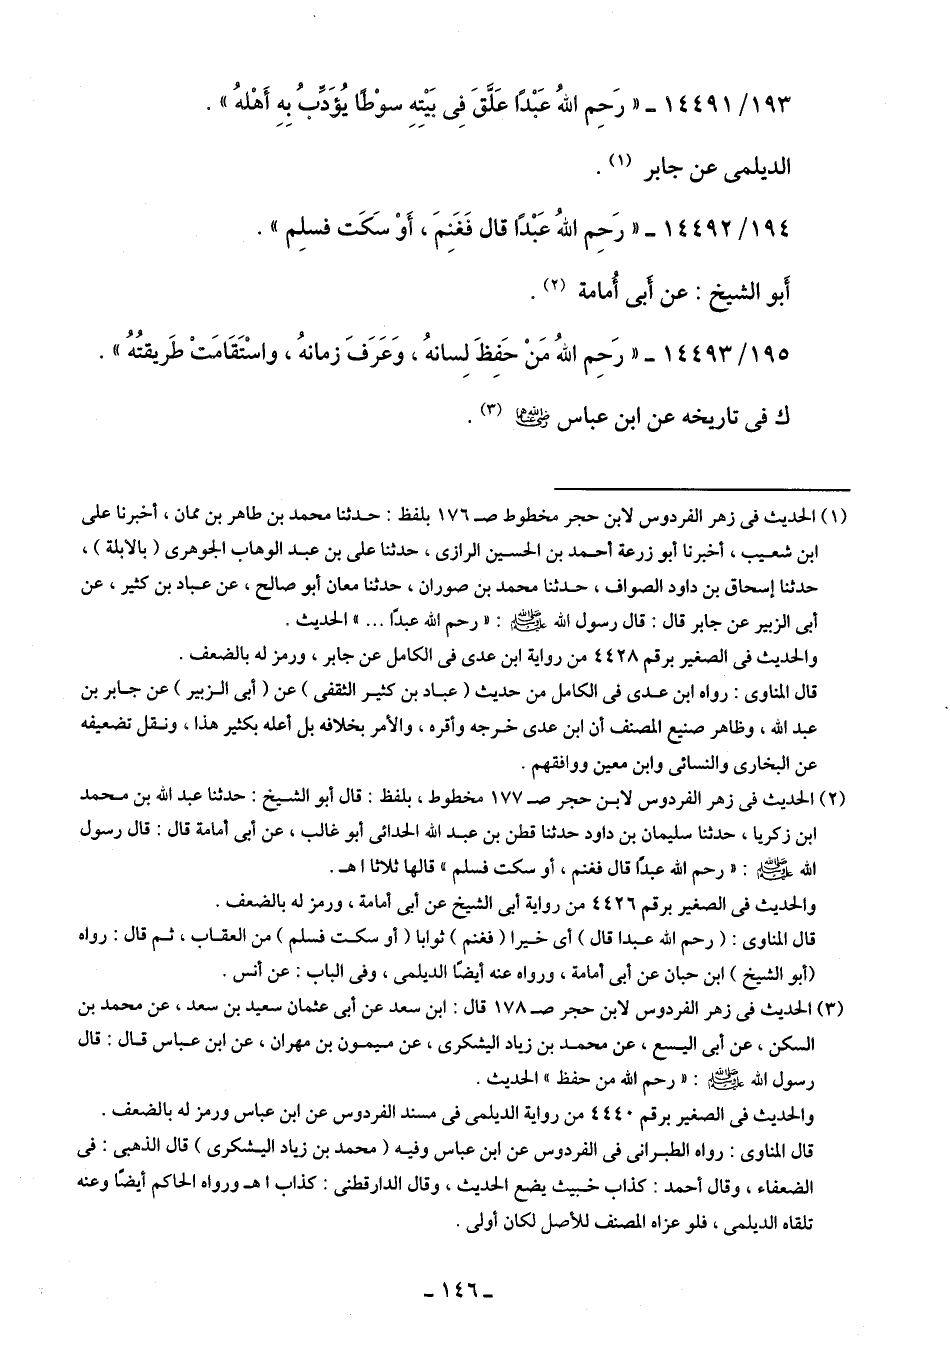 ١٤٤٩١/١٩٣ ـ « رَحِم اللهُ عَبْدًا عَلَّقَ فِى بَيْتِهِ سوْطًا يُؤَدِّبُ بِهِ أَهْلهُ » .
الديلمى عن جابر (١) .
١٤٤٩٢/١٩٤ ـ « رَحِم اللهُ عَبْدًا قال فَغَنِمَ ، أَوْ سَكَت فسلِم » .
أَبو الشيخ : عن أَبى أُمامة (٢) .
١٤٤٩٣/١٩٥ ـ « رَحِم اللهُ مَنْ حَفِظَ لِسانهُ ، وَعَرَفَ زمانهُ ، واسْتَقَامَتْ طَرِيقتُهُ » .
ك فى تاريخه عن ابن عباس رضي الله عنهما (٣) .
(١) الحديث فى زهر الفردوس لابن حجر مخطوط صـ ١٧٦ بلفظ : حـدثنا محمد بن طاهر بن ممان ، أخبرنا على
ابن شعـيب ، أخبرنا أبو زرعة أحـمد بن الحسين الرازى ، حدثنا على بن عبـد الوهاب الجوهرى ( بالابلة ) ،
حدثنا إسحاق بن داود الصواف ، حـدثنا محمد بن صوران ، حدثنا معان أبو صالح ، عن عباد بن كثير ، عن
أبى الزبير عن جابر قال : قال رسول الله ﷺ : « رحم الله عبدًا ... » الحديث .
والحديث فى الصغير برقم ٤٤٢٨ من رواية ابن عدى فى الكامل عن جابر ، ورمز له بالضعف .
قال المناوى : رواه ابن عـدى فى الكامل من حديث ( عباد بن كثـير الثقفى ) عن ( أبى الـزبير ) عن جـابر بن
عبد الله ، وظاهر صنيع المصنف أن ابن عدى خـرجه وأقره ، والأمر بخلافه بل أعله بكثير هذا ، ونـقل تضعيفه
عن البخارى والنسائى وابن معين ووافقهم .
(٢) الحديث فى زهر الفردوس لابـن حجر صـ ١٧٧ مخطوط ، بلفظ : قال أبو الشـيخ : حدثنا عبد الله بن محـمد
ابن زكريا ، حدثنا سليمان بن داود حدثنا قطن بن عبـد الله الحدائى أبو غالب ، عن أبى أمامة قال : قال رسول
الله ﷺ : « رحم الله عبدًا قال فغنم ، أو سكت فسلم » قالها ثلاثا اهـ .
والحديث فى الصغير برقم ٤٤٢٦ من رواية أبى الشيخ عن أبى أمامة ، ورمز له بالضعف .
قال المناوى : ( رحم الله عـبدا قال ) أى خـيرا ( فغنم ) ثوابا ( أو سكـت فسلم ) من العقاب ، ثـم قال : رواه
(أبو الشيخ ) ابن حبان عن أبى أمامة ، ورواه عنه أيضًا الديلمى ، وفى الباب : عن أنس .
(٣) الحديث فى زهر الفردوس لابن حجر صـ ١٧٨ قال : ابن سعد عن أبى عثمان سعيد بن سعد ، عن محمد بن
السكن ، عن أبى اليسع ، عن محمـد بن زياد اليشكرى ، عن ميـمون بن مهران ، عن ابن عـباس قـال : قال
رسول الله ﷺ : « رحم الله من حفظ » الحديث .
والحديث فى الصغير برقم ٤٤٤٠ من رواية الديلمى فى مسند الفردوس عن ابن عباس ورمز له بالضعف .
قال المناوى : رواه الطبـرانى فى الفردوس عن ابن عباس وفيه ( محمد بن زياد اليـشكرى ) قال الذهبى : فى
الضعفاء ، وقال أحمد : كذاب خـبيث يضع الحديث ، وقال الدارقطنى : كذاب ا هـ ورواه الحاكم أيضًا وعنه
تلقاه الديلمى ، فلو عزاه المصنف للأصل لكان أولى .
ـ ١٤٦ ـ